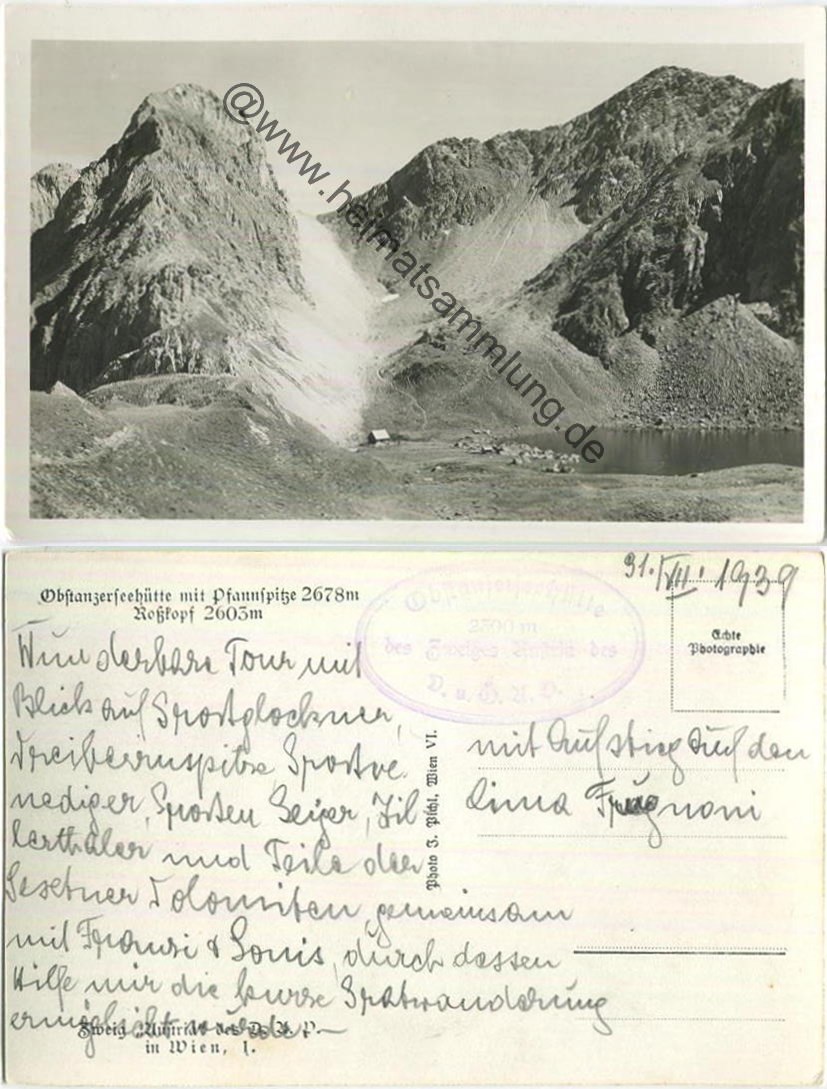 @www.heimatsammlung.de
Obstanzerseehütte mit Pfannspitze 2678m
Roßkopf 2603m
31./VII. 1939
Obstanserseehütte
2300 m
des Zweiges Austria des
D. u. Ö. A. V.
Echte
Photographie
Wunderbare Tour mit
Blick auf
Dreiherrnspitze
nediger, Geiger, Zil
lerthaler und Teile der
Sextner Dolomiten gemeinsam
mit Franzi & Louis, durch dessen
Hilfe mir die kurze
ermöglicht wurde.
mit Aufstieg auf den
Cima Frugnoni
Photo J. Pichl, Wien VI.
Zweig „Austria“ des D. A. V.
in Wien, 1.